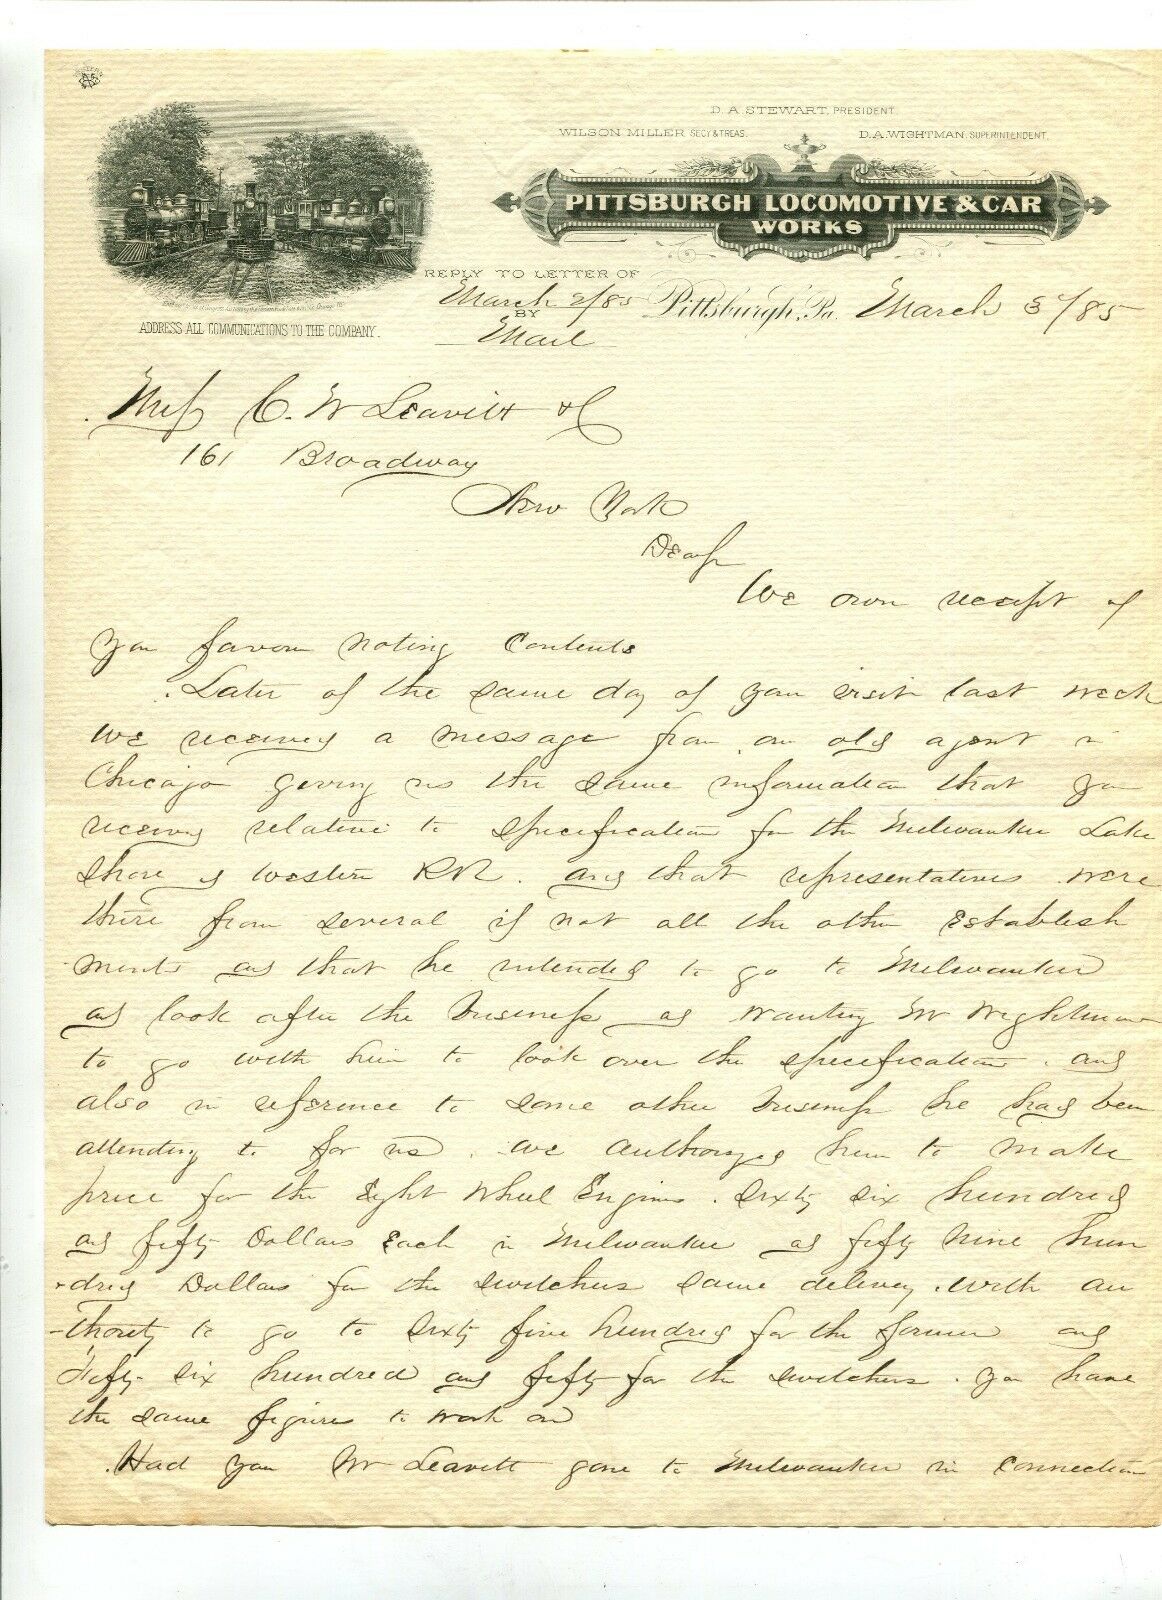 D. A. STEWART, PRESIDENT
WILSON MILLER SECY & TREAS. D. A. WIGHTMAN, SUPERINTENDENT.
PITTSBURGH LOCOMOTIVE & CAR
WORKS
REPLY TO LETTER OF
March 2/85 Pittsburgh, Pa. March 3d/85
BY
Mail
ADDRESS ALL COMMUNICATIONS TO THE COMPANY.
C. W Leavitt & Co
161 Broadway
New York
We own receipt of
your favour noting Contents
Later of the same day of your visit last week
we received a message from an old agent in
Chicago giving us the same information that you
received relative to specification for the Milwaukee Lake
Shore & Western RR. and that representatives were
there from several if not all the other Establish
ments and that he intended to go to Milwaukee
and look after the business and wanting Mr Wightman
to go with him to look over the specification. and
also in reference to some other business he had been
attending to for us. we authorized him to make
price for the Eight Wheel Engines. Sixty six hundred
and fifty Dollars Each in Milwaukee and fifty nine hun
-dred Dollars for the switchers same delivery. with au
-thority to go to Sixty five hundred for the former and
Fifty six hundred and fifty for the switchers. You have
the same figures to work on
Had you Mr Leavitt gone to Milwaukee in Connection